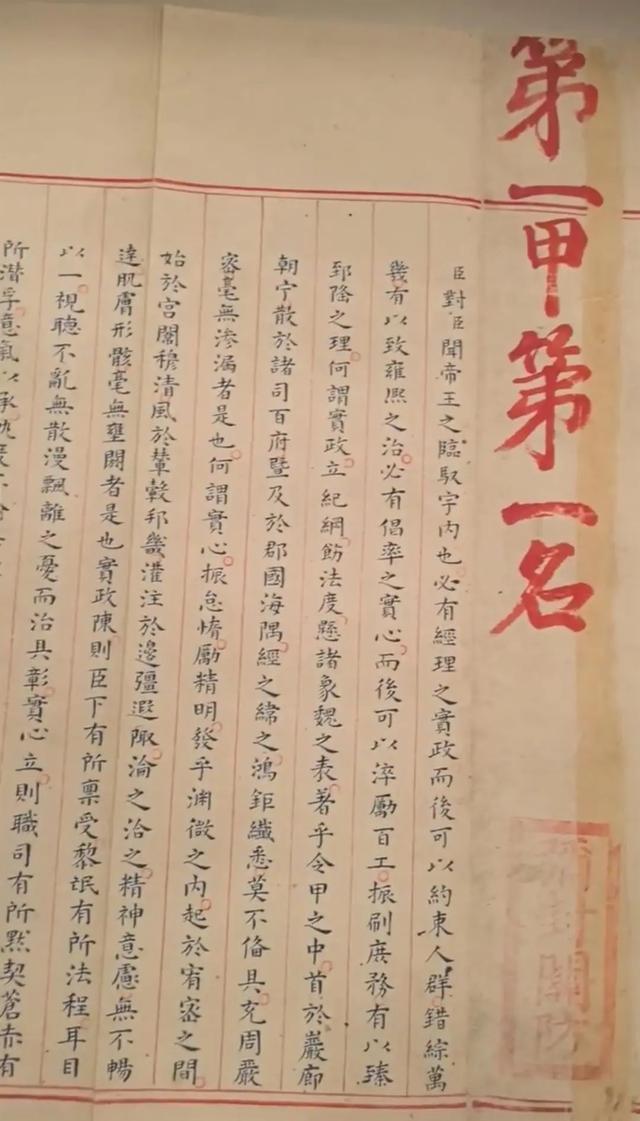 第一甲第一名
臣對臣聞帝王之臨馭宇內也必有經理之實政而後可以約束人群錯綜萬
幾有以致雍熙之治必有倡率之實心而後可以淬勵百工振刷庶務有以臻
郅隆之理何謂實政立紀綱飭法度懸諸象魏之表著乎令甲之中首於巖廊
朝宁散於諸司百府暨及於郡國海隅經之緯之鴻鉅纖悉莫不偹具充周嚴
密毫無滲漏者是也何謂實心振怠惰勵精明發乎淵微之內起於宥密之間
始於宮闈穆清風於輦轂邦畿灌注於邊疆遐陬淪之洽之精神意慮無不暢
達肌膚形骸毫無壅閼者是也實政陳則臣下有所稟受黎氓有所法程耳目
以一視聽不亂無散漫飄離之憂而治具彰實心立則職司有所默契蒼赤有
所潛孚意氣以承
彌封關防